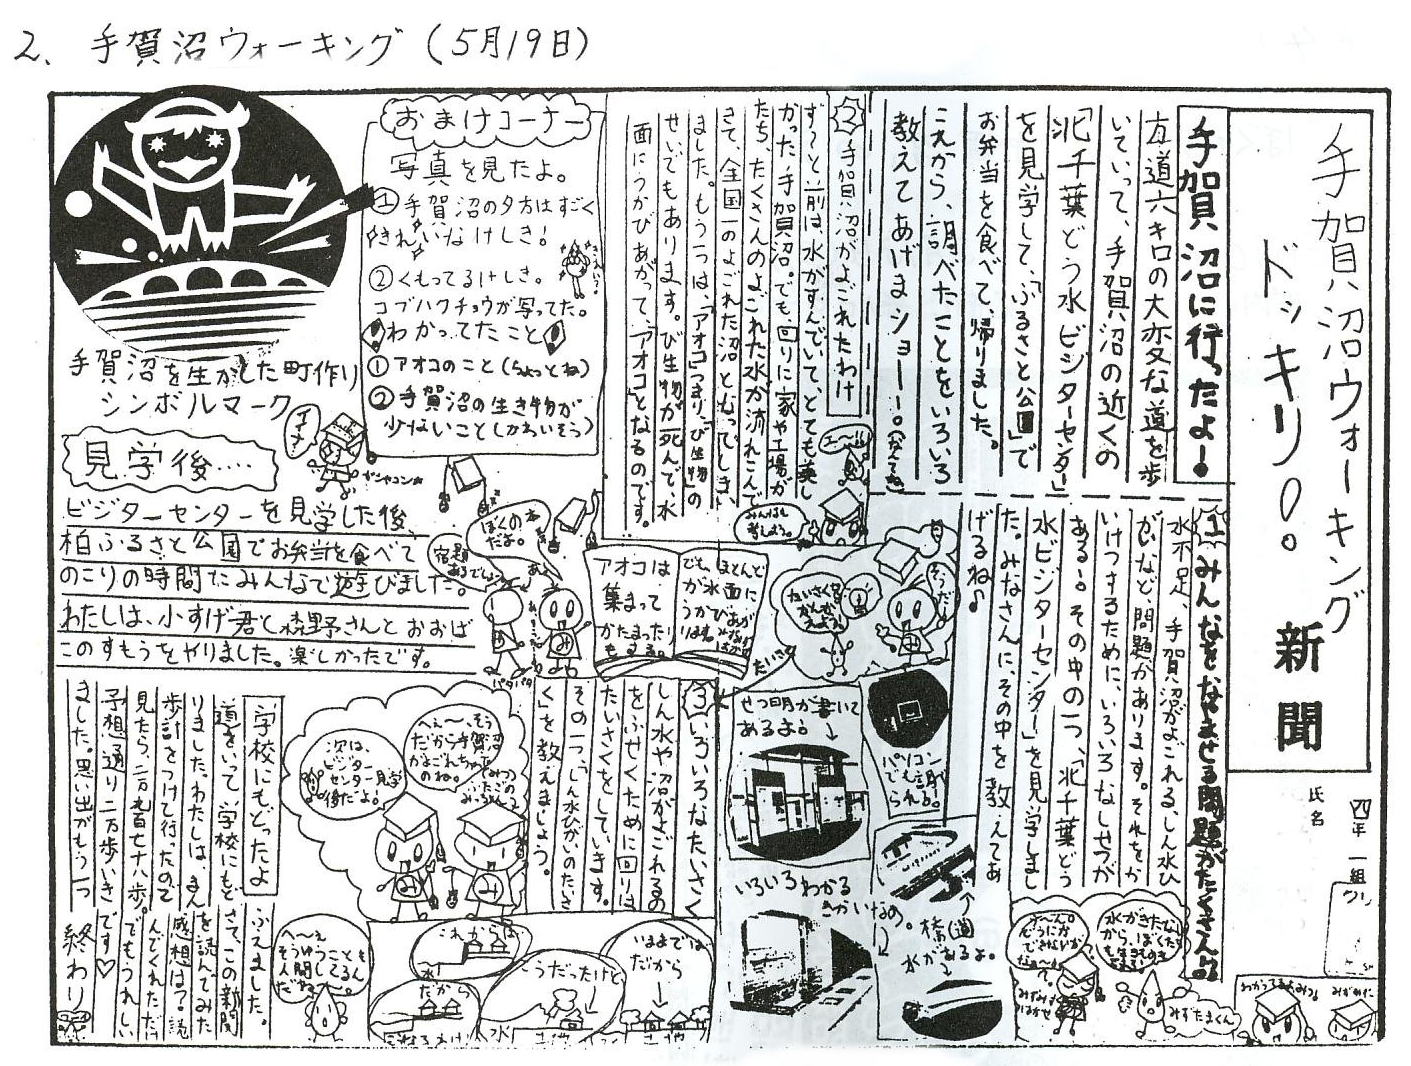 2、手賀沼ウォーキング(5月19日)
手賀沼ウォーキング
ドッキリ!。
新聞
四年一組
氏名
手賀沼に行ったよー!
友道六キロの大変な道を歩
いていって、手賀沼の近くの
「北千葉どう水ビジターセンター」
を見学して、「ふるさと公園」で
お弁当を食べて、帰りました。
これから、調べたことをいろいろ
教えてあげまショー。
1 みんなをなやませる問題がたくさん
水不足、手賀沼がよごれる、しん水ひ
がいなど、問題があります。それをか
いけつするために、いろいろなしせつが
ある!。その中の一つ、「北千葉どう
水ビジターセンター」を見学しまし
た。みなさんに、その中を教えてあ
げるね♪
2 手賀沼がよごれたわけ
ず〜と前は水がすんでいて、とても美し
かった手賀沼。でも、回りに家や工場が
たち、たくさんのよごれた水が流れこんで
きて、全国一のよごれた沼となってしまい
ました。もう一つは、「アオコ」つまり、「び生物」の
せいでもあります。び生物が死んで、水
面にうかびあがって、「アオコ」となるのです。
みんなも
考しよう。
アオコは
集まって
かたまったり
もする。
でも、ほとんど
が水面に
うかびあが
ります。
おまけコーナー
写真を見たよ。
①手賀沼の夕方はすごく
きれいなけしき!
②くもってるけしき。
コブハクチョウが写ってた。
わかってたこと
①アオコのこと(ちょっとね)
②手賀沼の生き物が
少ないこと(かわいそう)
手賀沼を生かした町作り
シンボルマーク
見学後....
ビジターセンターを見学した後、
柏ふるさと公園でお弁当を食べて
のこりの時間でみんなで遊びました。
わたしは、小すげ君と森野さんとおおば
このすもうをやりました。楽しかったです。
ぼくの
だよ。
宿題
あるでしょ
パタパタ
3 いろいろなたいさく
しん水や沼がよごれるの
をふせぐために回りは
たいさくをしています。
その一つ、「しん水ひがいのたいさ
く」を教えましょう。
せつ明が書いて
あるよ。
パソコン
でも調
べられる。
いろいろわかる
きかいなの。
橋(道)
水があるよ。
へえ〜、そう
だから手賀沼
がよごれちゃった
のね。
次は、
ビジター
センター見学
後だよ。
いままでは
だから
こうだったけど
これからは
だから
水
学校にもどったよ
道をいって、学校にもど
りました。わたしは、まん
歩計をつけて行ったので
見たら、二万九百七十八歩。
予想通り二万歩いき
ました。思い出がもう一つ
ふえました。
さて、この新聞
を読んでみた
感想は?読
んでくれただ
でもうれしい
です♡
終わり
へ〜え
そうゆうことも
水がきたない
から、ぼくたち
みずたまくん